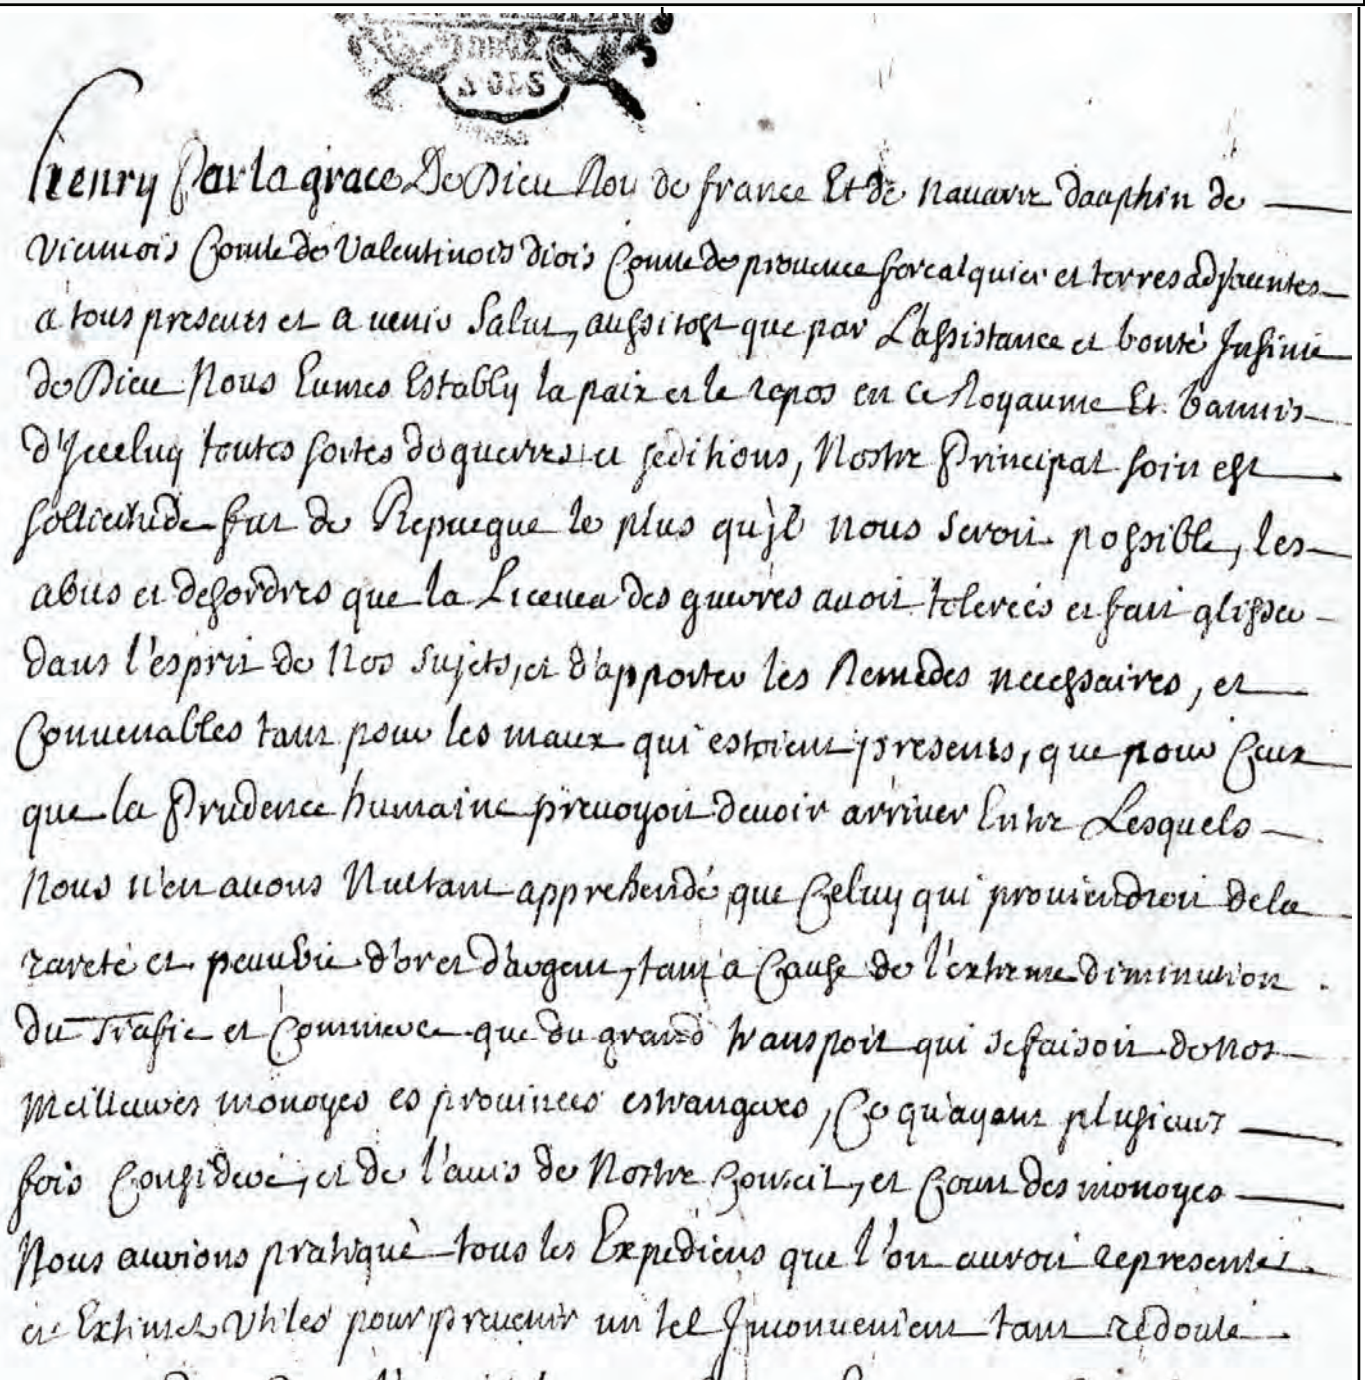 DEUX
SOLS
henry Par la grace De Dieu Roy de france Et de nauarre dauphin de
viennois Comte de Valentinois diois Comte de prouence forcalquier et terres adjacentes
a tous presents et a venir Salut, aussitost que par L'assistance et bonté Infinie
de Dieu Nous Eumes Estably la paix et le repos en ce Royaume Et bannis
d'Iceluy toutes sortes de guerres et seditions, Nostre Principal soin est
sollicitude fut de le plus qu'jl nous seroit possible, les
abus et desordres que la Licence des guerres auoit tolerées et fait glisser
dans l'esprit de Nos sujets, et d'apporter les Remedes necessaires, et
Conuenables tant pour les maux qui estoient presents, que pour Ceux
que la Prudence humaine preuoyoit deuoir arriuer Entre Lesquels
Nous n'en auons apprehendé que Celuy qui prouiendroit de la
rareté et penurie d'or et d'argent, tant a Cause de l'extreme diminution
du Trafic et Commerce que du grand transport qui se faisoit de nos
Meilleures monoyes es prouinces estrangeres, Ce qu'ayant plusieurs
fois Consideré, et de l'auis de Nostre Conseil, et Cour des monoyes
Nous aurions pratiqué tous les Expediens que l'on auroit representés
et Vtiles pour preuenir un tel Inconuenient tant redouté